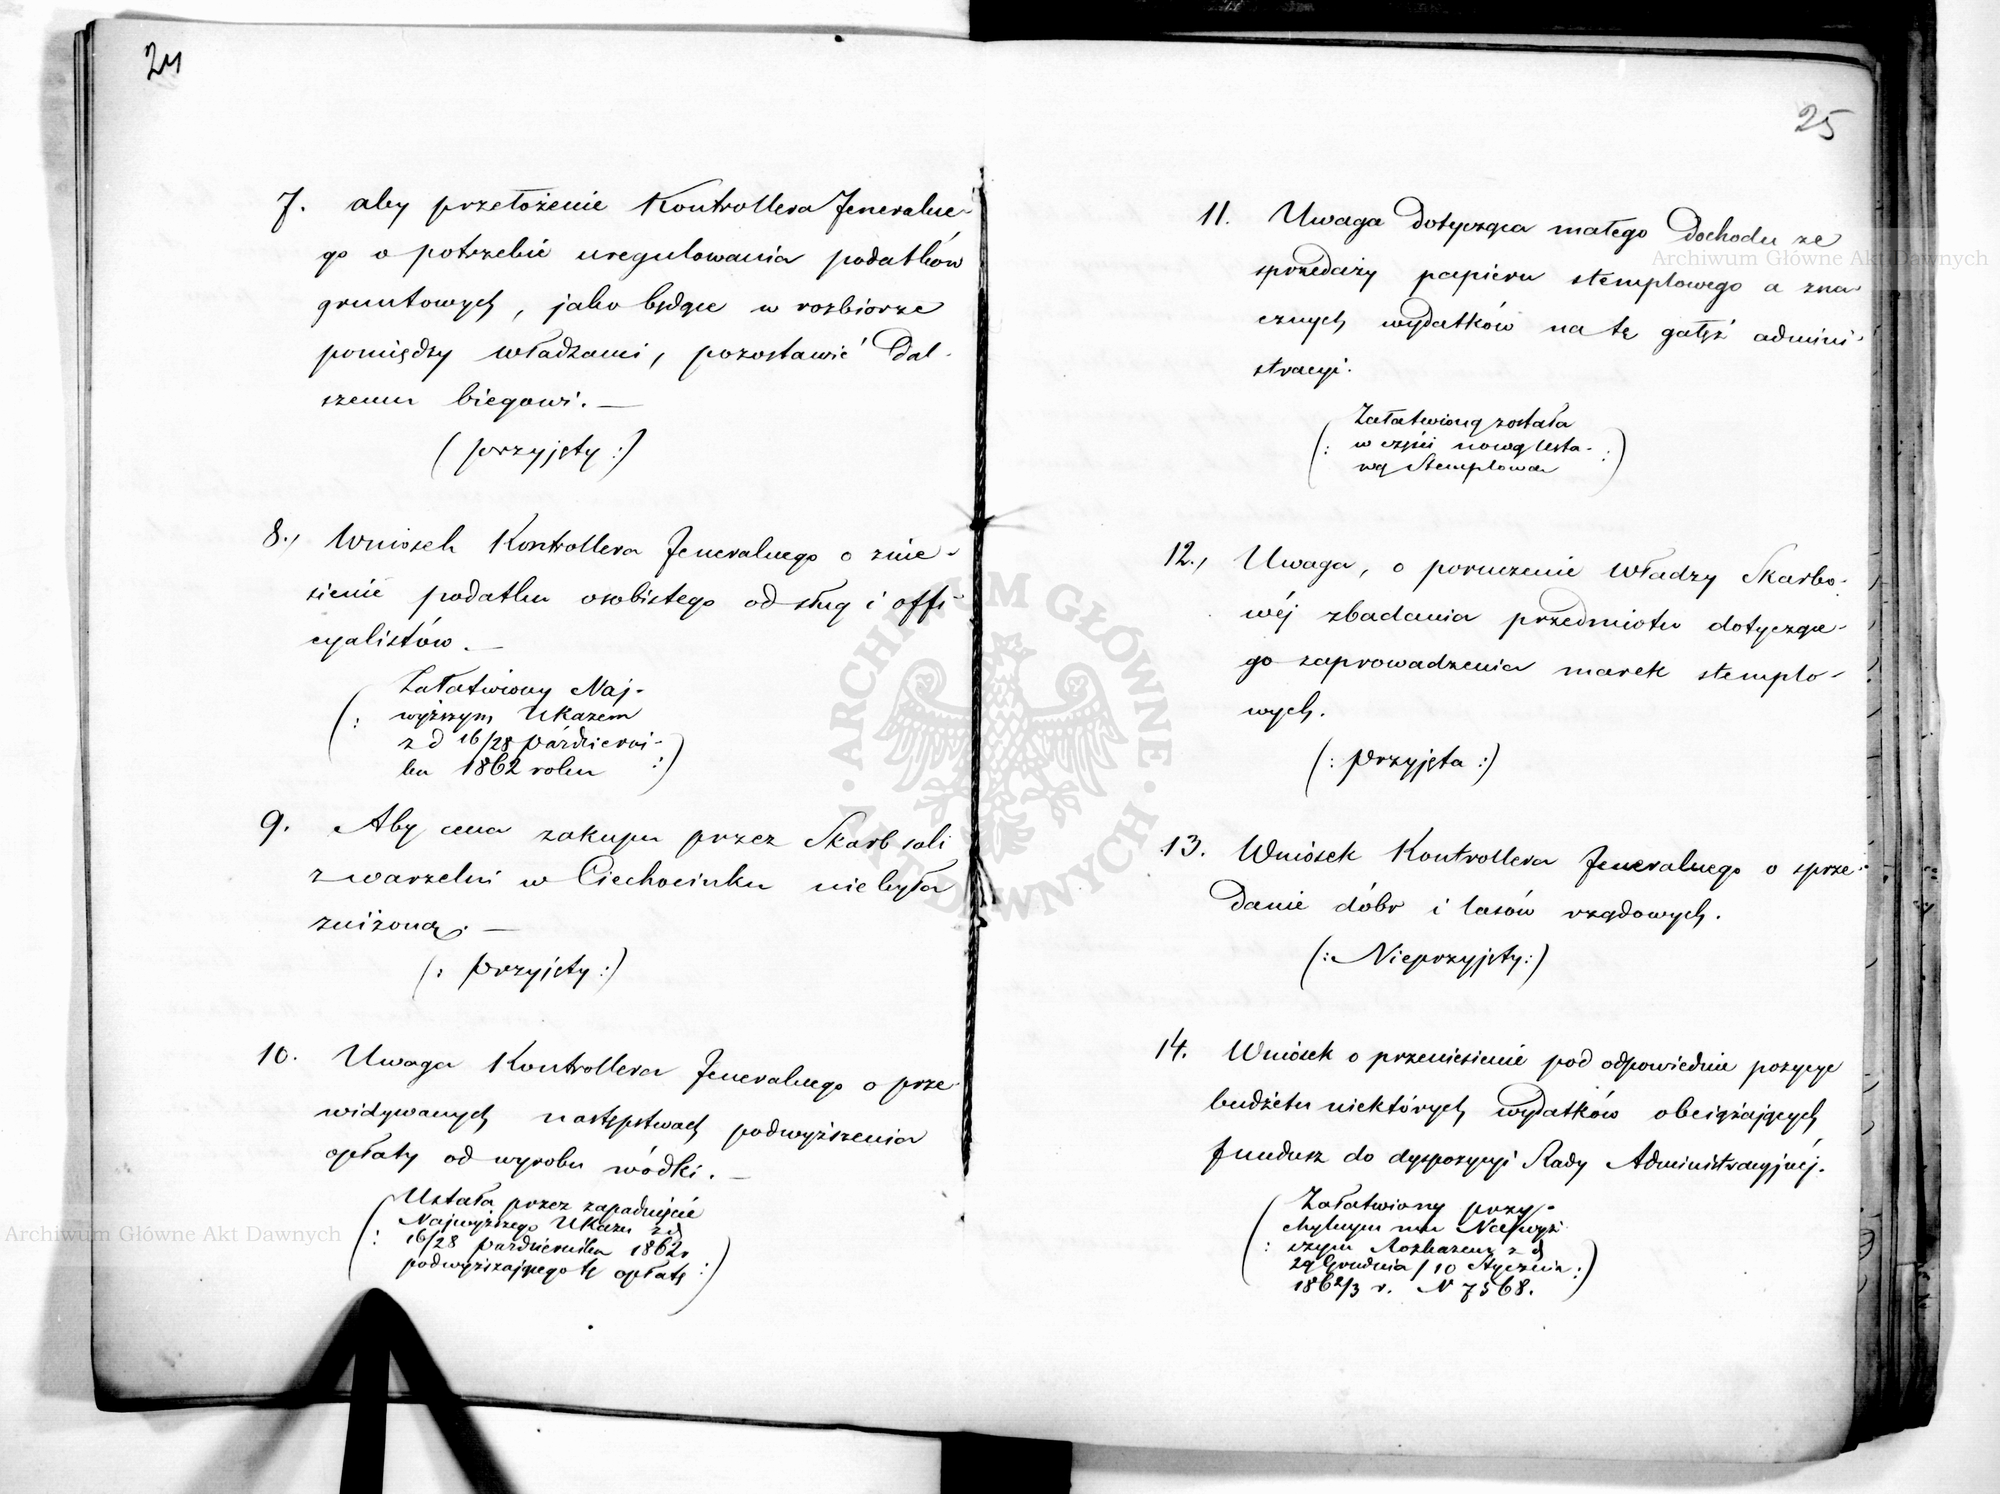 24
7. aby przełożenie Kontrollera Jeneralne-
go o potrzebie uregulowania podatków
gruntowych, jako będące w rozbiorze
pomiędzy władzami, pozostawić dal-
szemu biegowi. —
(przyjęty :)
8., Wniosek Kontrollera Jeneralnego o znie-
sienie podatku osobistego od sług i offi-
cyalistów. —
(: Załatwiony Naj-
wyższym Ukazem
z d 16/28 Październi-
ka 1862 roku :)
9. Aby cena zakupu przez Skarb soli
z warzelni w Ciechocinku nie była
zniżoną. —
(: przyjęty :)
10. Uwaga Kontrollera Jeneralnego o prze-
widywanych następstwach podwyższenia
opłaty od wyrobu wódki. —
(: Ustała przez zapadnięcie
Najwyższego Ukazu z d
16/28 Października 1862 r
podwyższającego tę opłatę :)
25
11. Uwaga dotycząca małego dochodu ze
sprzedaży papieru stemplowego a zna-
cznych wydatków na tę gałęź admini-
stracyi.
(: Załatwioną została
w części nową Usta-
wą Stemplową :)
12., Uwaga, o poruczenie Władzy Skarbo-
wéj zbadania przedmiotu dotyczące-
go zaprowadzenia marek stemplo-
wych.
(: Przyjęta :)
13. Wniosek Kontrollera Jeneralnego o sprze-
danie dóbr i lasów rządowych.
(: Nieprzyjęty :)
14. Wniosek o przeniesienie pod odpowiednie pozycye
budżetu niektórych wydatków obciążających
fundusz do dyspozycyi Rady Administracyjnéj.
(: Załatwiony przy-
chylnym mu Najwyż-
szym Rozkazem z d
29 Grudnia / 10 Stycznia
1862/3 r. N 7568. :)
Archiwum Główne Akt Dawnych
Archiwum Główne Akt Dawnych
ARCHIWUM GŁÓWNE AKT DAWNYCH